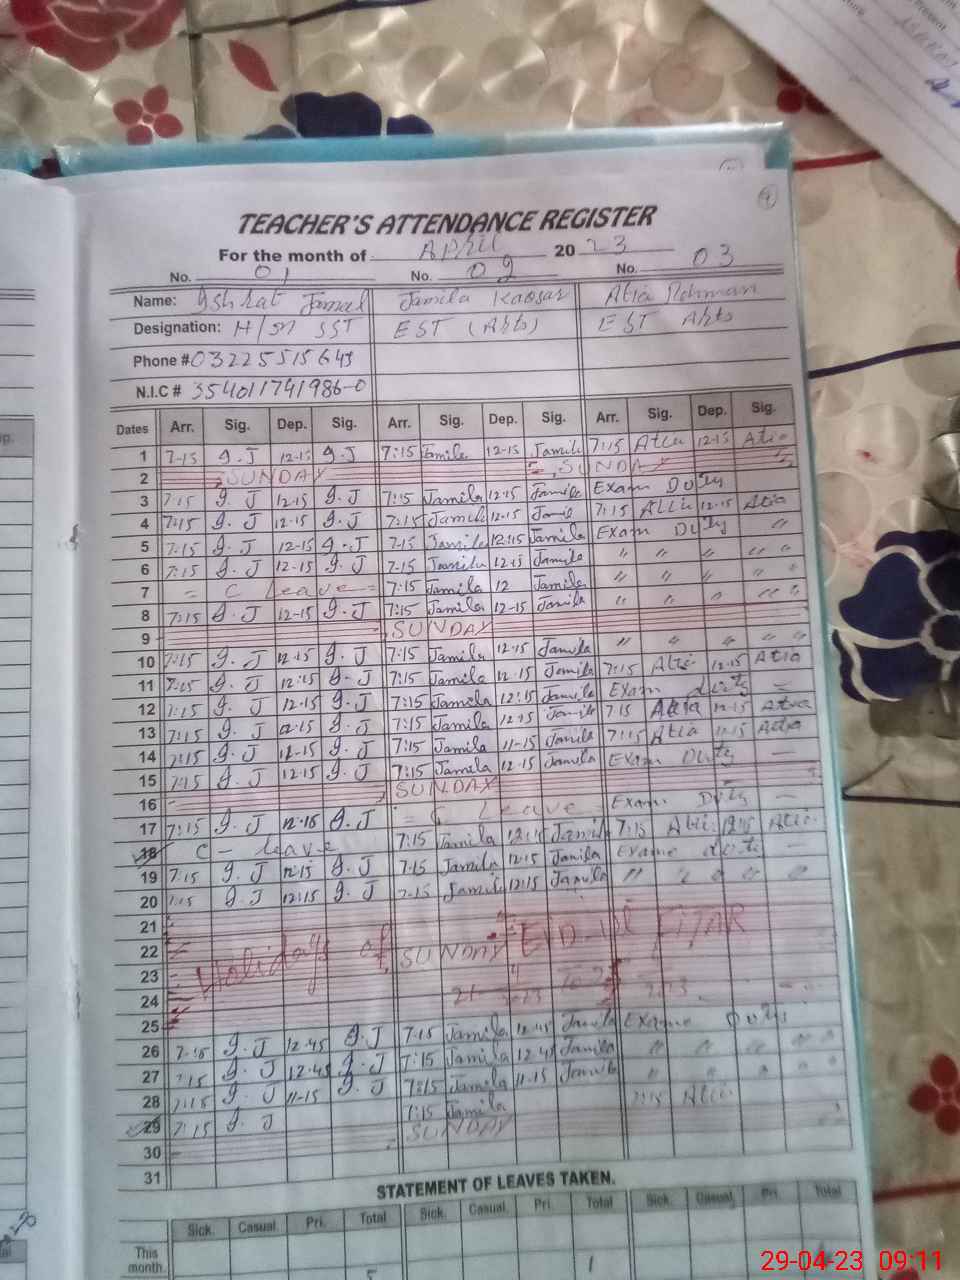 TEACHER'S ATTENDANCE REGISTER
For the month of April 20 23
No. 01 No. 02 No. 03
Name: Ishrat Jamal Jamila Kaosar Atia Rehman
Designation: H/M SST EST (Arts) EST Arts
Phone #
N.I.C # 354011741986-0
Dates Arr. Sig. Dep. Sig. Arr. Sig. Dep. Sig. Arr. Sig. Dep. Sig.
1 7-15 I.J 12-15 I.J 7:15 Jamila 12-15 Jamila 7:15 Atia 12-15 Atia
2 SUNDAY SUNDAY
3 7:15 I.J 12-15 I.J 7:15 Jamila 12-15 Jamila Exam Duty
4 7:15 I.J 12-15 I.J 7:15 Jamila 12-15 Jamila 7:15 Atia 12-15 Atia
5 7:15 I.J 12-15 I.J 7-15 Jamila 12:15 Jamila Exam Duty "
6 7:15 I.J 12-15 I.J 7-15 Jamila 12-15 Jamila " " " " "
7 = C Leave = 7:15 Jamila 12 Jamila " " " " "
8 7:15 I.J 12-15 I.J 7:15 Jamila 12-15 Jamila " " " " "
9 SUNDAY
10 7:15 I.J 12:15 I.J 7:15 Jamila 12:15 Jamila " " " " "
11 7:15 I.J 12:15 I.J 7:15 Jamila 12-15 Jamila 7:15 Atia 12:15 Atia
12 7:15 I.J 12-15 I.J 7:15 Jamila 12:15 Jamila Exam duty =
13 7:15 I.J 12-15 I.J 7:15 Jamila 12:15 Jamila 7:15 Atia 12-15 Atia
14 7:15 I.J 12-15 I.J 7:15 Jamila 11-15 Jamila 7:15 Atia 11:15 Atia
15 7:15 I.J 12-15 I.J 7:15 Jamila 12-15 Jamila Exam Duty —
16 SUNDAY
17 7:15 I.J 12-15 I.J = C Leave = Exam Duty —
18 C - leave 7:15 Jamila 12:15 Jamila 7:15 Atia 12:15 Atia
19 7:15 I.J 12:15 I.J 7:15 Jamila 12:15 Jamila Exame duty —
20 7:15 I.J 12:15 I.J 7:15 Jamila 12:15 Jamila " " " "
21
22 Holidays of SUNDAY EID-UL FITAR
23
24
25
26 7-15 I.J 12-45 I.J 7:15 Jamila 12:45 Jamila Exame Duty
27 7:15 I.J 12-45 I.J 7:15 Jamila 12-45 Jamila " " " " "
28 7:15 I.J 11-15 I.J 7:15 Jamila 11-15 Jamila " " " " "
29 7:15 I.J 7:15 Jamila 7:15 Atia
30 SUNDAY
31
STATEMENT OF LEAVES TAKEN.
Sick. Casual. Pri. Total Sick. Casual. Pri. Total Sick. Casual. Pri. Total
This month. 1
29-04-23 09:11